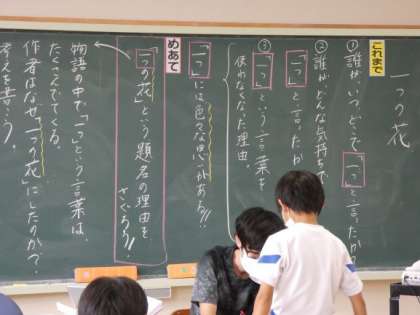 一つの花
これまで
①誰が、いつ、どこで「一つ」と言ったか？
②誰が、どんな気持ちで
「一つ」と言ったか
③「一つ」という言葉を
使わなくなった理由。
「一つ」には色々な思いがある!!
めあて
「一つの花」という題名の理由を
さぐろう!!
物語の中で「一つ」という言葉は、
たくさんでてくる。
作者はなぜ「一つの花」にしたのか？
考えを書こう。